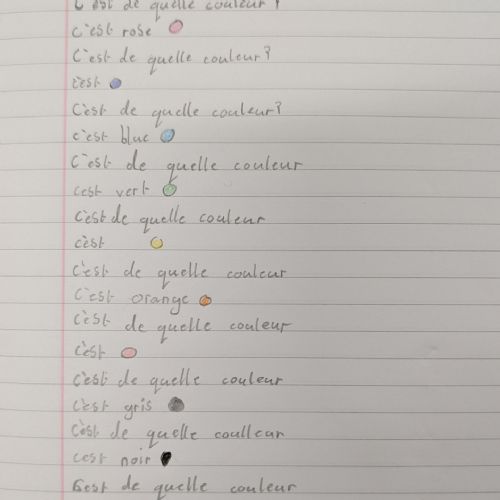 C'est de quelle couleur?
c'est rose
C'est de quelle couleur?
c'est
C'est de quelle couleur?
c'est blue
C'est de quelle couleur
cest vert
C'est de quelle couleur
cèst
C'est de quelle couleur
C'est orange
C'est de quelle couleur
c'est
C'est de quelle couleur
c'est gris
C'est de quelle coulleur
cest noir
Cest de quelle couleur